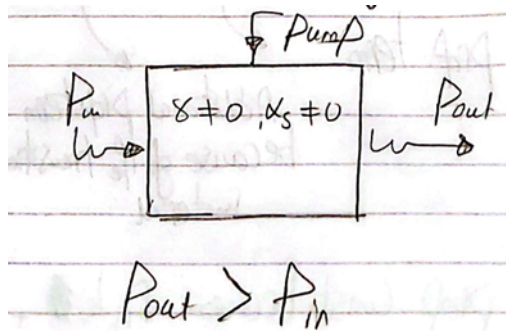 Pump
Pin γ≠0, αs≠0 Pout
Pout > Pin